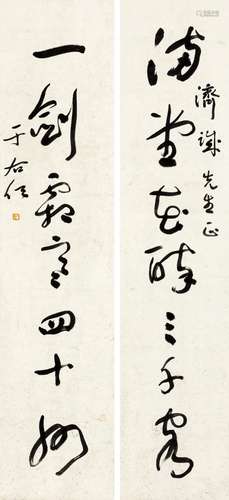 满堂花醉三千客
濟誠先生正
一劍霜寒四十州
于右任